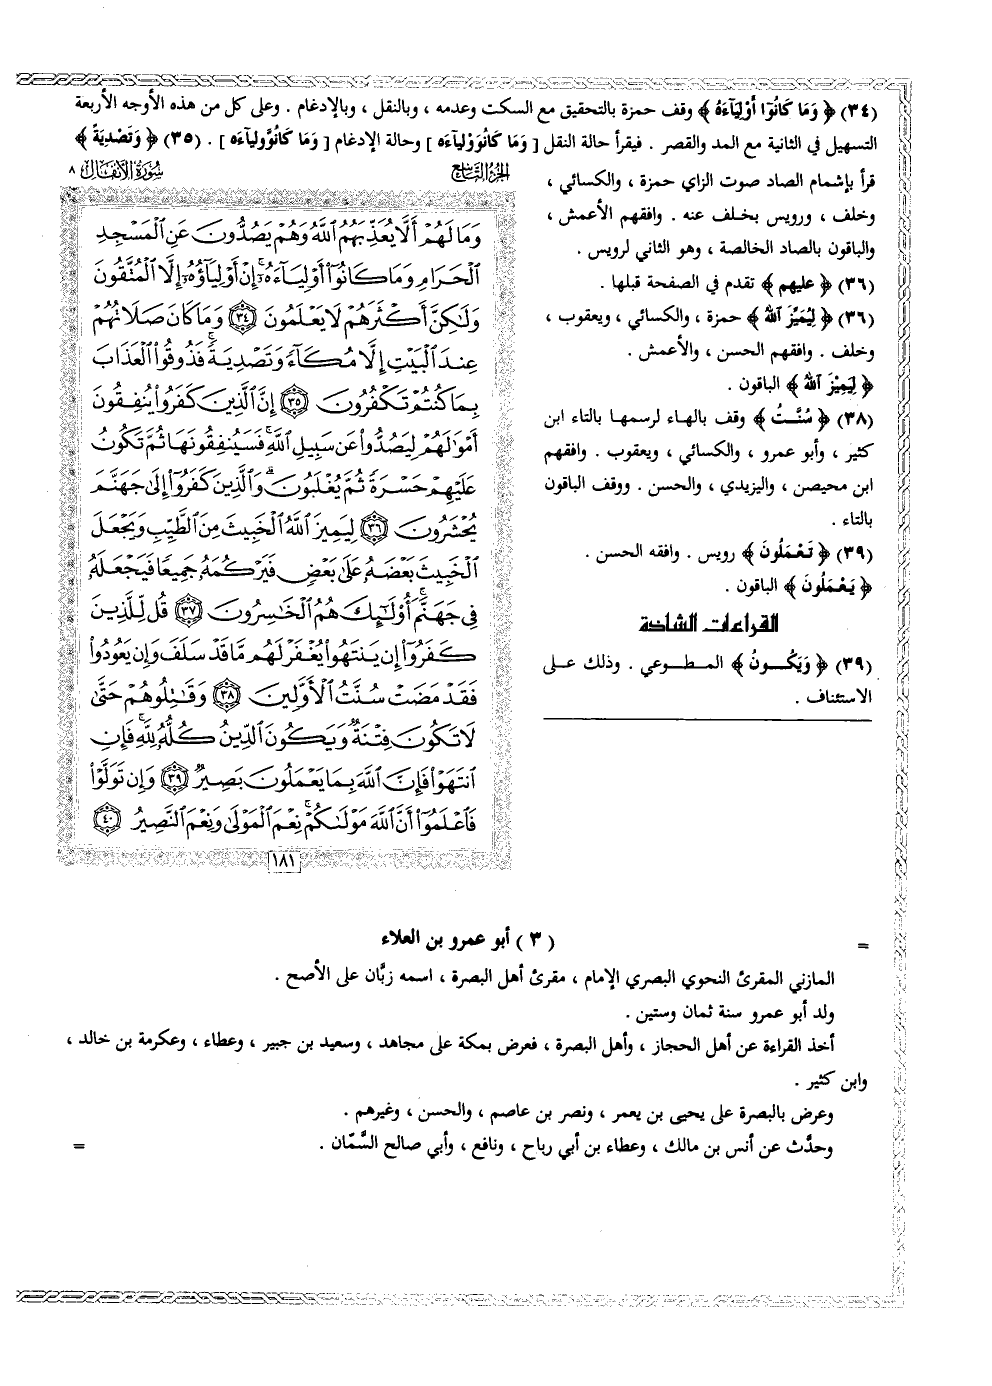 (٣٤) ﴿ وَمَا كَانُوٓا أَوْلِيَآءَهُ ﴾ وقف حمزة بالتحقيق مع السكت وعدمه ، وبالنقل ، وبالإدغام . وعلى كل من هذه الأوجه الأربعة
التسهيل في الثانية مع المد والقصر . فيقرأ حالة النقل [ وَمَا كَانُوَوْلِيآءَه ] وحالة الإدغام [ وَمَا كَانُوَّولِيآءَه ] . (٣٥) ﴿ وَتَصْدِيَةً ﴾
قرأ بإشمام الصاد صوت الزاي حمزة ، والكسائي ،
وخلف ، ورويس بخلف عنه . وافقهم الأعمش ،
والباقون بالصاد الخالصة ، وهو الثاني لرويس .
(٣٦) ﴿ عليهم ﴾ تقدم في الصفحة قبلها .
(٣٦) ﴿ لِيُمَيِّزَ اللهُ ﴾ حمزة ، والكسائي ، ويعقوب ،
وخلف . وافقهم الحسن ، والأعمش .
﴿ لِيَمِيْزَ اللهُ ﴾ الباقون .
(٣٨) ﴿ سُنَّتُ ﴾ وقف بالهاء لرسمها بالتاء ابن
كثير ، وأبو عمرو ، والكسائي ، ويعقوب . وافقهم
ابن محيصن ، واليزيدي ، والحسن . ووقف الباقون
بالتاء .
(٣٩) ﴿ تَعْمَلُونَ ﴾ رويس . وافقه الحسن .
﴿ يَعْمَلُونَ ﴾ الباقون .
القراءات الشاذة
(٣٩) ﴿ وَيَكُونُ ﴾ المطوعي . وذلك على
الاستئناف .
الجزء التاسع
سُورَةُ الأَنفَال ٨
وَمَا لَهُمْ أَلَّا يُعَذِّبَهُمُ ٱللَّهُ وَهُمْ يَصُدُّونَ عَنِ ٱلْمَسْجِدِ
ٱلْحَرَامِ وَمَا كَانُوٓا۟ أَوْلِيَآءَهُۥٓ ۚ إِنْ أَوْلِيَآؤُهُۥٓ إِلَّا ٱلْمُتَّقُونَ
وَلَٰكِنَّ أَكْثَرَهُمْ لَا يَعْلَمُونَ ٣٤ وَمَا كَانَ صَلَاتُهُمْ
عِندَ ٱلْبَيْتِ إِلَّا مُكَآءً وَتَصْدِيَةً ۚ فَذُوقُوا۟ ٱلْعَذَابَ
بِمَا كُنتُمْ تَكْفُرُونَ ٣٥ إِنَّ ٱلَّذِينَ كَفَرُوا۟ يُنفِقُونَ
أَمْوَٰلَهُمْ لِيَصُدُّوا۟ عَن سَبِيلِ ٱللَّهِ ۚ فَسَيُنفِقُونَهَا ثُمَّ تَكُونُ
عَلَيْهِمْ حَسْرَةً ثُمَّ يُغْلَبُونَ ۗ وَٱلَّذِينَ كَفَرُوٓا۟ إِلَىٰ جَهَنَّمَ
يُحْشَرُونَ ٣٦ لِيَمِيزَ ٱللَّهُ ٱلْخَبِيثَ مِنَ ٱلطَّيِّبِ وَيَجْعَلَ
ٱلْخَبِيثَ بَعْضَهُۥ عَلَىٰ بَعْضٍ فَيَرْكُمَهُۥ جَمِيعًا فَيَجْعَلَهُۥ
فِى جَهَنَّمَ ۚ أُو۟لَٰٓئِكَ هُمُ ٱلْخَٰسِرُونَ ٣٧ قُل لِّلَّذِينَ
كَفَرُوٓا۟ إِن يَنتَهُوا۟ يُغْفَرْ لَهُم مَّا قَدْ سَلَفَ وَإِن يَعُودُوا۟
فَقَدْ مَضَتْ سُنَّتُ ٱلْأَوَّلِينَ ٣٨ وَقَٰتِلُوهُمْ حَتَّىٰ
لَا تَكُونَ فِتْنَةٌ وَيَكُونَ ٱلدِّينُ كُلُّهُۥ لِلَّهِ ۚ فَإِنِ
ٱنتَهَوْا۟ فَإِنَّ ٱللَّهَ بِمَا يَعْمَلُونَ بَصِيرٌ ٣٩ وَإِن تَوَلَّوْا۟
فَٱعْلَمُوٓا۟ أَنَّ ٱللَّهَ مَوْلَىٰكُمْ ۚ نِعْمَ ٱلْمَوْلَىٰ وَنِعْمَ ٱلنَّصِيرُ ٤٠
١٨١
= ( ٣ ) أبو عمرو بن العلاء
المازني المقرئ النحوي البصري الإمام ، مقرئ أهل البصرة ، اسمه زبَّان على الأصح .
ولد أبو عمرو سنة ثمان وستين .
أخذ القراءة عن أهل الحجاز ، وأهل البصرة ، فعرض بمكة على مجاهد ، وسعيد بن جبير ، وعطاء ، وعكرمة بن خالد ،
وابن كثير .
وعرض بالبصرة على يحيى بن يعمر ، ونصر بن عاصم ، والحسن ، وغيرهم .
وحدَّث عن أنس بن مالك ، وعطاء بن أبي رباح ، ونافع ، وأبي صالح السَّمّان . =